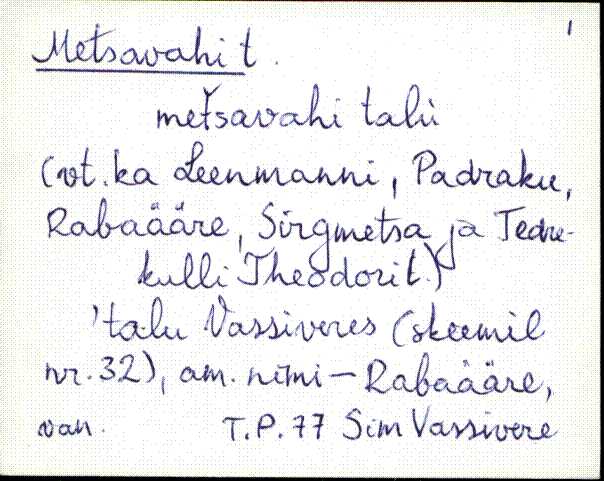 1
Metsavahi t.
metsavahi talu
(vt. ka Leenmanni, Padraku,
Rabaääre, Sirgmetsa ja Tedre-
kulli Theodori t.)
'talu Vassiveres (skeemil
nr. 32), am. nimi – Rabaääre,
van. T.P. 77 Sim Vassivere